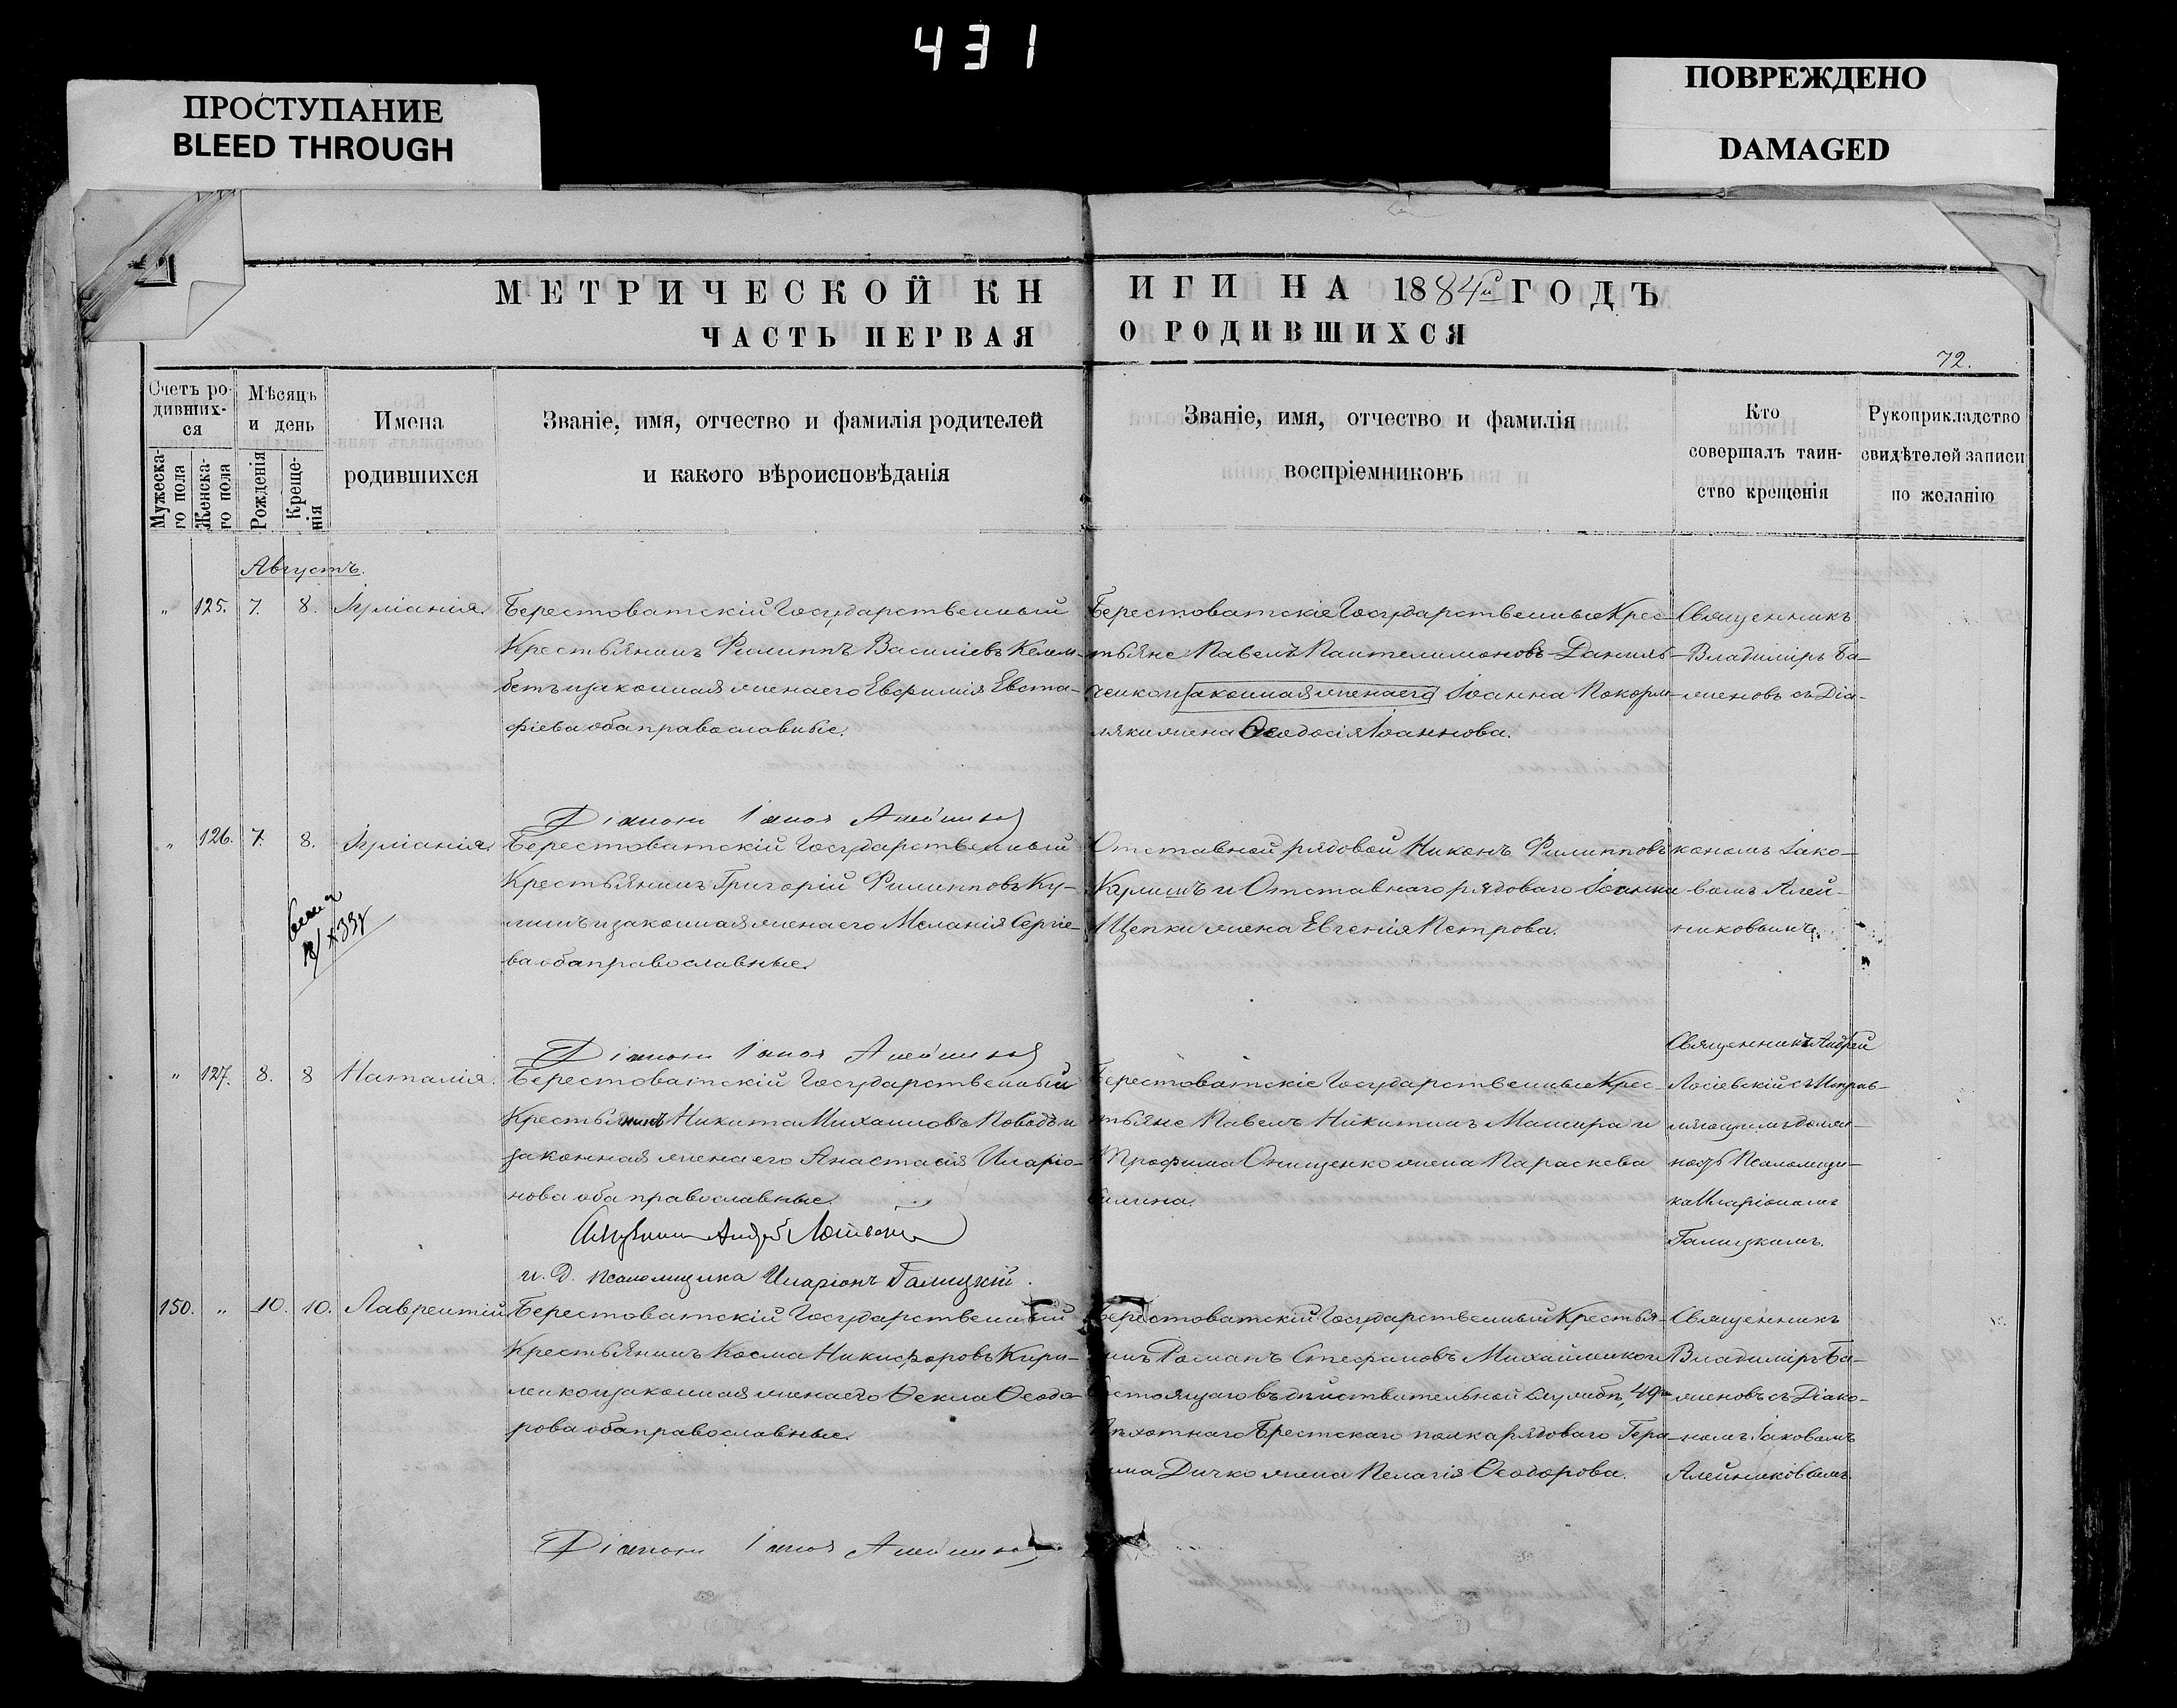 431
ПРОСТУПАНИЕ
BLEED THROUGH
ПОВРЕЖДЕНО
DAMAGED
МЕТРИЧЕСКОЙ КНИГИ НА 1884й ГОДЪ
ЧАСТЬ ПЕРВАЯ О РОДИВШИХСЯ
72.
Счетъ ро-
дивших-
ся
Мужеска-
го пола
Женска-
го пола
Мѣсяцъ
и день
Рожденія
Креще-
нія
Имена
родившихся
Званіе, имя, отчество и фамилія родителей
и какого вѣроисповѣданія
Званіе, имя, отчество и фамилія
воспріемниковъ
Кто
совершалъ таин-
ство крещенія
Рукоприкладство
свидѣтелей записи
по желанію
Августъ.
„ 125. 7. 8. Іуліанія.
Берестоватскій Государственный
Крестьянинъ Филиппъ Василіевъ Келем-
бетъ и законная жена его Евфимія Евста-
фіева оба православные.
Берестоватскіе Государственные Крес-
тьяне Павелъ Пантелимоновъ Даниль-
ченко и законная жена его Іоанна Покорм-
ляки жена Ѳеодосія Іоаннова.
Священникъ
Владиміръ Ба-
женовъ съ Діа-
Діаконъ Іаковъ Алейниковъ
„ 126. 7. 8. Іуліанія.
Берестоватскій Государственный
Крестьянинъ Григорій Филипповъ Ку-
лишъ и законная жена его Меланія Сергіе-
ва оба православные.
Отставной рядовой Никонъ Филипповъ
Кулишъ и Отставнаго рядоваго Іоанна
Щепки жена Евгенія Петрова.
кономъ Іако-
вомъ Алей-
никовымъ.
Діаконъ Іаковъ Алейниковъ
„ 127. 8. 8 Наталія.
Берестоватскій Государственный
Крестьянинъ Никита Михаиловъ Поводъ и
законная жена его Анастасія Иларіо-
нова оба православные.
Берестоватскіе Государственные Крес-
тьяне Павелъ Никитинъ Машира и
Трофима Онищенко жена Параскева
Священникъ Андрей
Лосіевскій съ Исправ-
ляющимъ долж-
ность Псаломщи-
ка Иларіономъ
Галицкимъ.
Священникъ Андрей Лосіевскій
и. д. псаломщика Иларіонъ Галицкій.
150. „ 10. 10. Лаврентій
Берестоватскій Государственный
Крестьянинъ Косма Никифоровъ Кири-
ленко и законная жена его Ѳекла Ѳеодо-
рова оба православные.
Берестоватскій Государственный Крестья-
нинъ Романъ Стефановъ Михайленко и
состоящаго въ дѣйствительной службѣ, 49го
Пѣхотнаго Брестскаго полка рядоваго Гера-
сима Дичко жена Пелагія Ѳеодорова.
Священникъ
Владиміръ Ба-
женовъ съ Діако-
номъ Іаковомъ
Алейниковымъ
Діаконъ Іаковъ Алейниковъ